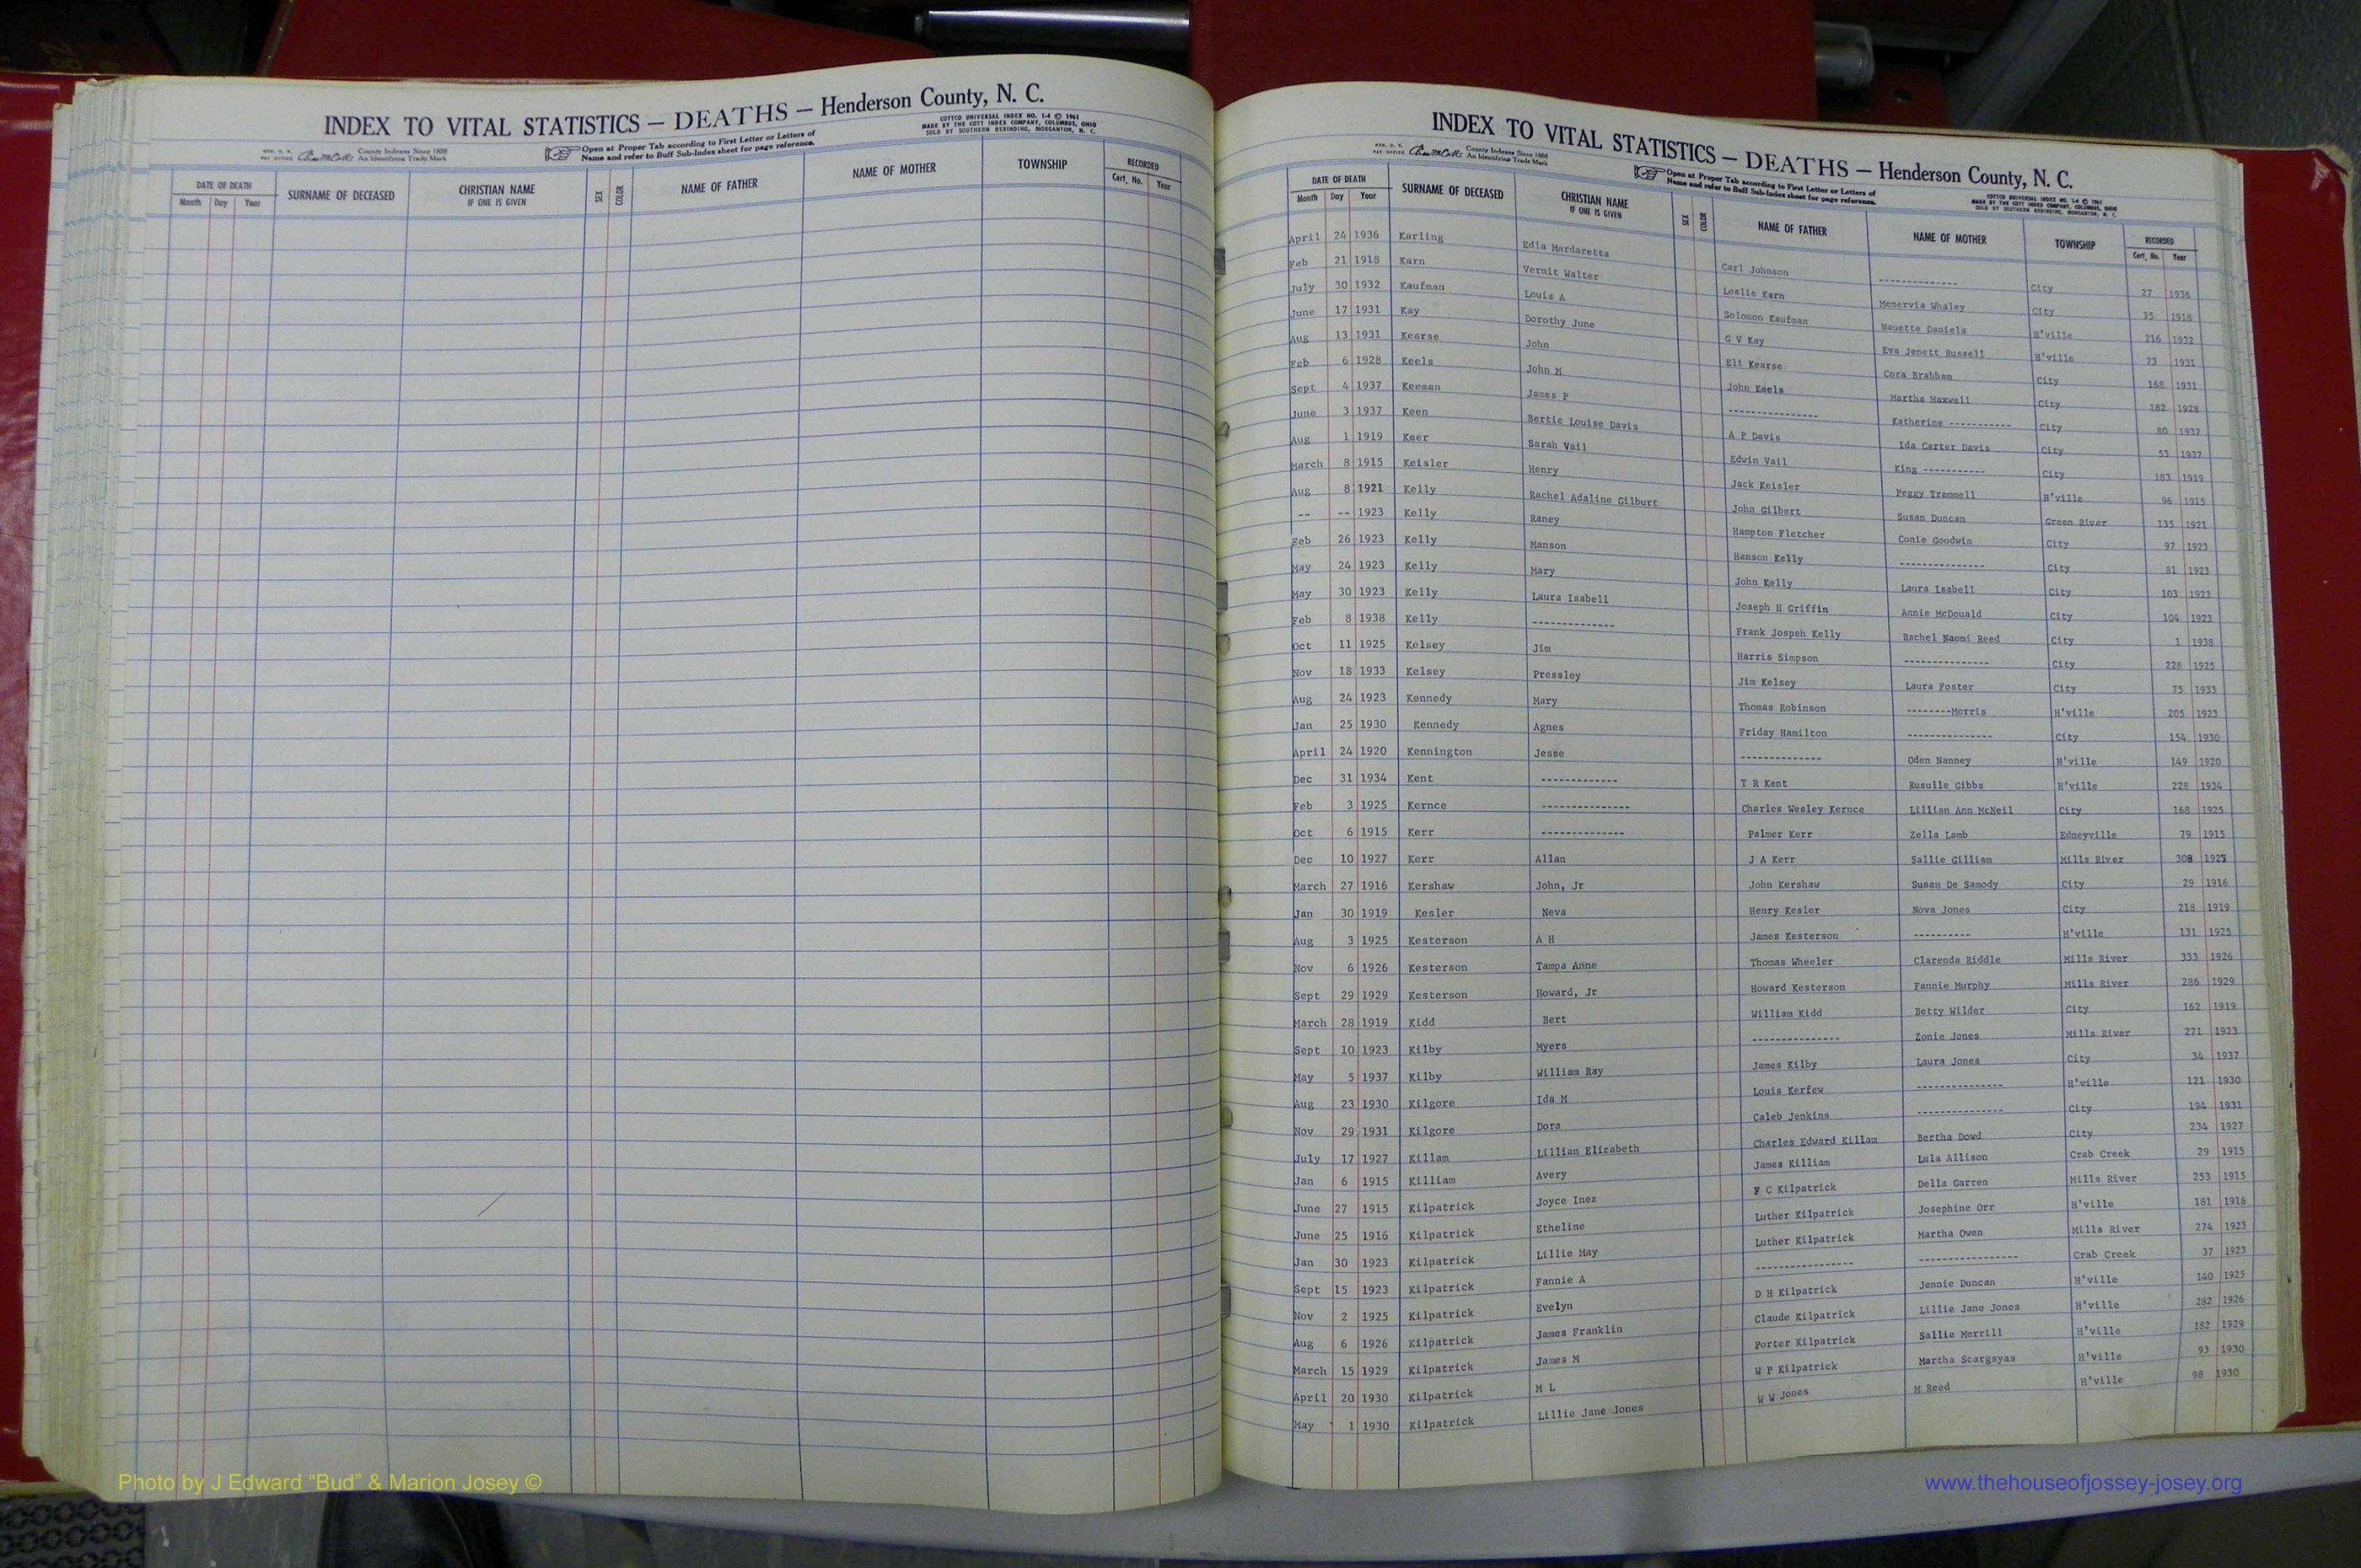 INDEX TO VITAL STATISTICS — DEATHS — Henderson County, N. C.
COTTCO UNIVERSAL INDEX NO. 1-4 © 1961
MADE BY THE COTT INDEX COMPANY, COLUMBUS, OHIO
SOLD BY SOUTHERN REBINDING, MORGANTON, N. C.
County Indexes Since 1888
An Identifying Trade Mark
Open at Proper Tab according to First Letter or Letters of
Name and refer to Buff Sub-Index sheet for page reference.
DATE OF DEATH SURNAME OF DECEASED CHRISTIAN NAME IF ONE IS GIVEN SEX COLOR NAME OF FATHER NAME OF MOTHER TOWNSHIP RECORDED
Month Day Year Cert. No. Year
INDEX TO VITAL STATISTICS — DEATHS — Henderson County, N. C.
County Indexes Since 1888
An Identifying Trade Mark
Open at Proper Tab according to First Letter or Letters of
Name and refer to Buff Sub-Index sheet for page reference.
COTTCO UNIVERSAL INDEX NO. 1-4 © 1961
MADE BY THE COTT INDEX COMPANY, COLUMBUS, OHIO
SOLD BY SOUTHERN REBINDING, MORGANTON, N. C.
DATE OF DEATH SURNAME OF DECEASED CHRISTIAN NAME IF ONE IS GIVEN SEX COLOR NAME OF FATHER NAME OF MOTHER TOWNSHIP RECORDED
Month Day Year Cert. No. Year
April 24 1936 Karling Edia Mardaretta Carl Johnson ------------- City 27 1936
Feb 21 1918 Karn Vernit Walter Leslie Karn Menervia Whaley City 35 1918
July 30 1932 Kaufman Louis A Solomon Kaufman Nauette Daniels H'ville 216 1932
June 17 1931 Kay Dorothy June G V Kay Eva Jenett Russell H'ville 73 1931
Aug 13 1931 Kearse John Eli Kearse Cora Brabham City 168 1931
Feb 6 1928 Keels John M John Keels Martha Maxwell City 182 1928
Sept 4 1937 Keeman James P --------------- Katherine ----------- City 80 1937
June 3 1937 Keen Bertie Louise Davis A P Davis Ida Carter Davis City 53 1937
Aug 1 1919 Keer Sarah Vail Edwin Vail King ----------- City 183 1919
March 8 1915 Keisler Henry Jack Keisler Peggy Trammell H'ville 96 1915
Aug 8 1921 Kelly Rachel Adaline Gilburt John Gilbert Susan Duncan Green River 135 1921
-- -- 1923 Kelly Raney Hampton Fletcher Conie Goodwin City 97 1923
Feb 26 1923 Kelly Manson Hanson Kelly -------------- City 81 1923
May 24 1923 Kelly Mary John Kelly Laura Isabell City 103 1923
May 30 1923 Kelly Laura Isabell Joseph H Griffin Annie McDouald City 104 1923
Feb 8 1938 Kelly -------------- Frank Jospeh Kelly Rachel Naomi Reed City 1 1938
Oct 11 1925 Kelsey Jim Harris Simpson -------------- City 228 1925
Nov 18 1933 Kelsey Pressley Jim Kelsey Laura Foster City 75 1933
Aug 24 1923 Kennedy Mary Thomas Robinson --------Morris H'ville 205 1923
Jan 25 1930 Kennedy Agnes Friday Hamilton -------------- City 154 1930
April 24 1920 Kennington Jesse -------------- Oden Nanney H'ville 149 1920
Dec 31 1934 Kent ------------- T R Kent Rusulle Gibbs H'ville 228 1934
Feb 3 1925 Kernce --------------- Charles Wesley Kernce Lillian Ann McNeil City 168 1925
Oct 6 1915 Kerr -------------- Palmer Kerr Zella Lamb Edneyville 79 1915
Dec 10 1927 Kerr Allan J A Kerr Sallie Gilliam Mills River 308
March 27 1916 Kershaw John, Jr John Kershaw Susan De Samody City 29 1916
Jan 30 1919 Kesler Neva Henry Kesler Nova Jones City 218 1919
Aug 3 1925 Kesterson A H James Kesterson ---------- H'ville 131 1925
Nov 6 1926 Kesterson Tampa Anne Thomas Wheeler Clarenda Riddle Mills River 333 1926
Sept 29 1929 Kesterson Howard, Jr Howard Kesterson Fannie Murphy Mills River 286 1929
March 28 1919 Kidd Bert William Kidd Betty Wilder City 162 1919
Sept 10 1923 Kilby Myers --------------- Zonie Jones Mills River 271 1923
May 5 1937 Kilby William Ray James Kilby Laura Jones City 34 1937
Aug 23 1930 Kilgore Ida M Louis Kerfew -------------- H'ville 121 1930
Nov 29 1931 Kilgore Dora Caleb Jenkins -------------- City 194 1931
July 17 1927 Killam Lillian Elizabeth Charles Edward Killam Bertha Dowd City 234 1927
Jan 6 1915 Killiam Avery James Killiam Lula Allison Crab Creek 29 1915
June 27 1915 Kilpatrick Joyce Inez F C Kilpatrick Della Garren Mills River 253 1915
June 25 1916 Kilpatrick Etheline Luther Kilpatrick Josephine Orr H'ville 181 1916
Jan 30 1923 Kilpatrick Lillie May Luther Kilpatrick Martha Owen Mills River 274 1923
Sept 15 1923 Kilpatrick Fannie A ---------------- ---------------- Crab Creek 37 1923
Nov 2 1925 Kilpatrick Evelyn D H Kilpatrick Jennie Duncan H'ville 140 1925
Aug 6 1926 Kilpatrick James Franklin Claude Kilpatrick Lillie Jane Jones H'ville 282 1926
March 15 1929 Kilpatrick James M Porter Kilpatrick Sallie Merrill H'ville 182 1929
April 20 1930 Kilpatrick M L W P Kilpatrick Martha Scargsyas H'ville 93 1930
May 1 1930 Kilpatrick Lillie Jane Jones W W Jones M Reed H'ville 98 1930
Photo by J Edward “Bud” & Marion Josey ©
www.thehouseofjossey-josey.org